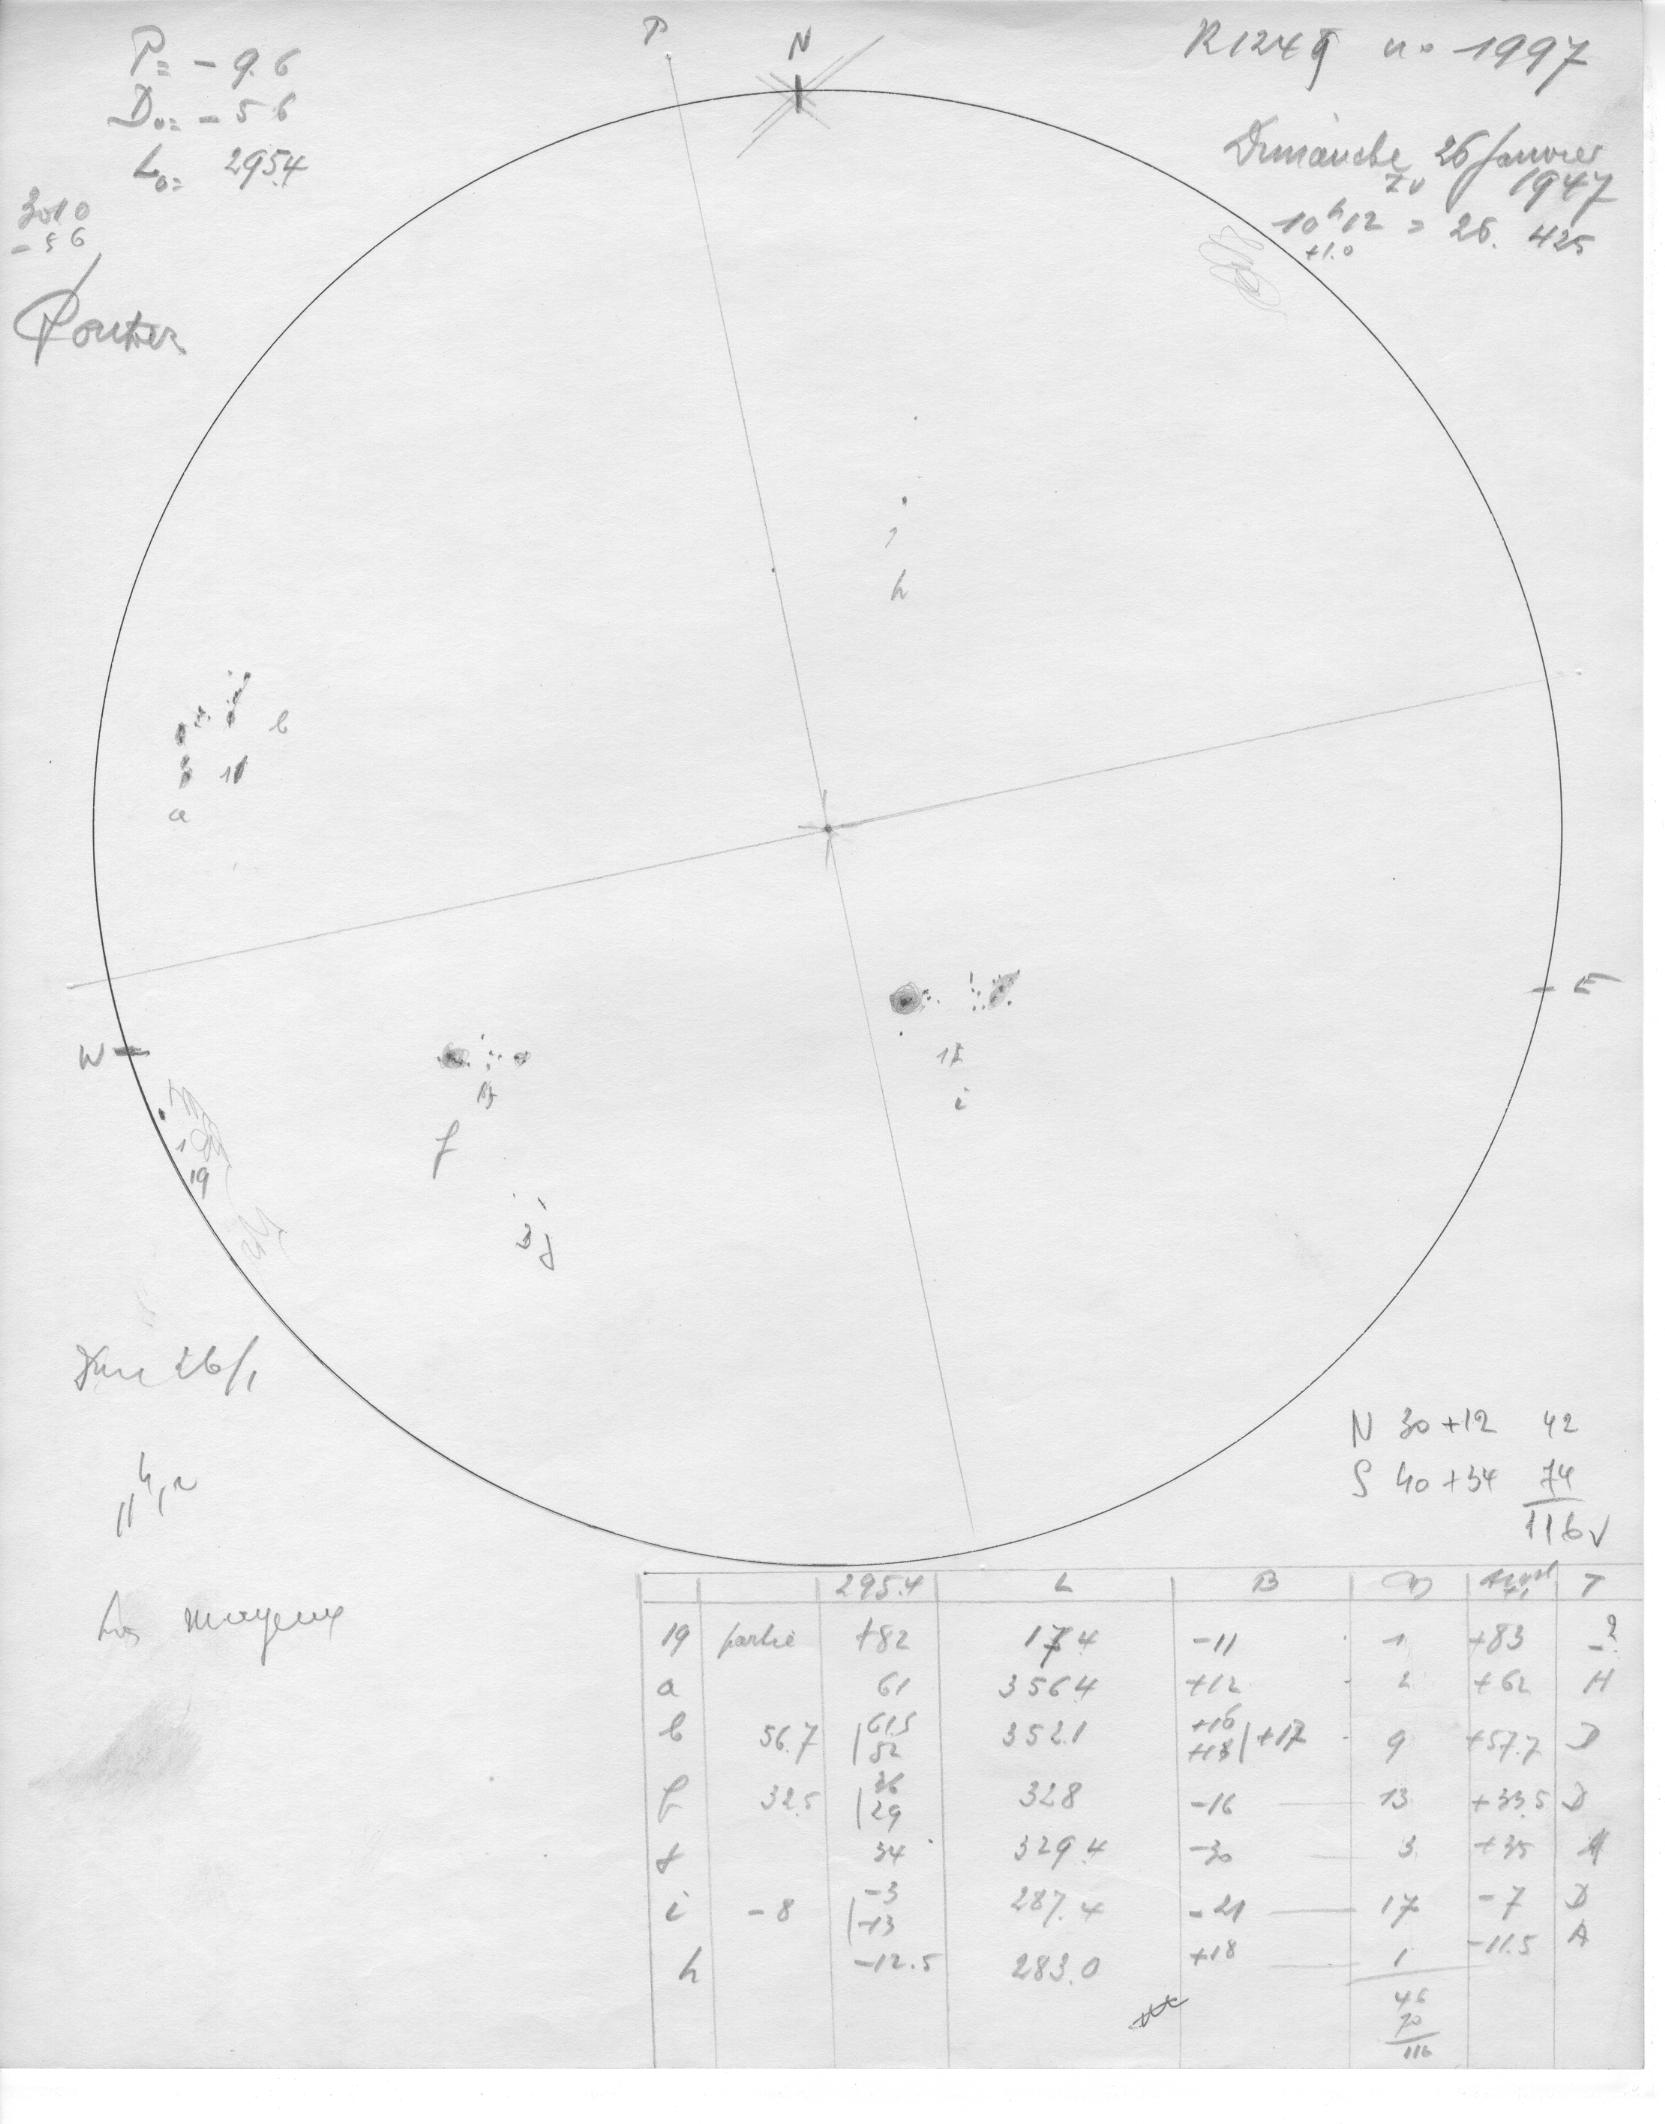 P N
P= -9.6
D₀= -5 6
L₀= 295.4
301 0
- 5 6
n° 1997
Dimanche 26 Janvier
TU 1947
10h12 = 26. 425
+1.0
h
b
11
a
1
W
E
17
i
f
1
19
3 g
26/1
N 30 +12 42
S 40 +34 74
116 √
moyenne
295.4 L B T
19 partie +82 17 4 -11 1 +83 -?
a 61 356 4 +12 2 +62 H
b 56.7 61.5 352.1 +16 +17 9 +57.7 D
52 +18
f 32.5 36 328 -16 13 +33.5 D
29
g 34 329 4 -30 3 +35
i -8 -3 287.4 -21 17 -7 D
-13
h -12.5 283.0 +18 1 -11.5 A
46
70
116